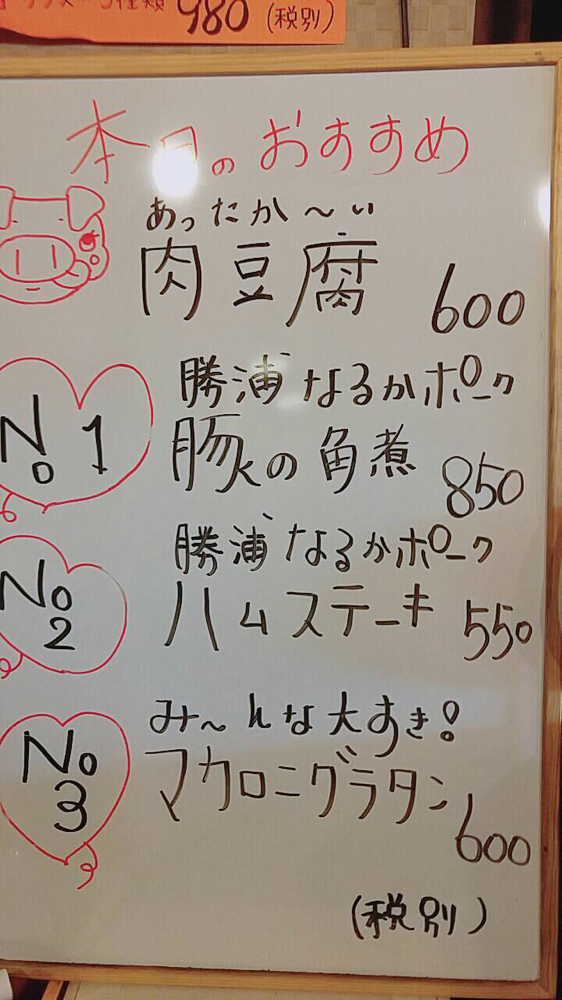 種類 980 (税別)
本日のおすすめ
あったか〜い
肉豆腐 600
No 1
勝浦なるかポーク
豚の角煮 850
No 2
勝浦なるかポーク
ハムステーキ 550
No 3
み〜んな大すき!
マカロニグラタン 600
(税別)